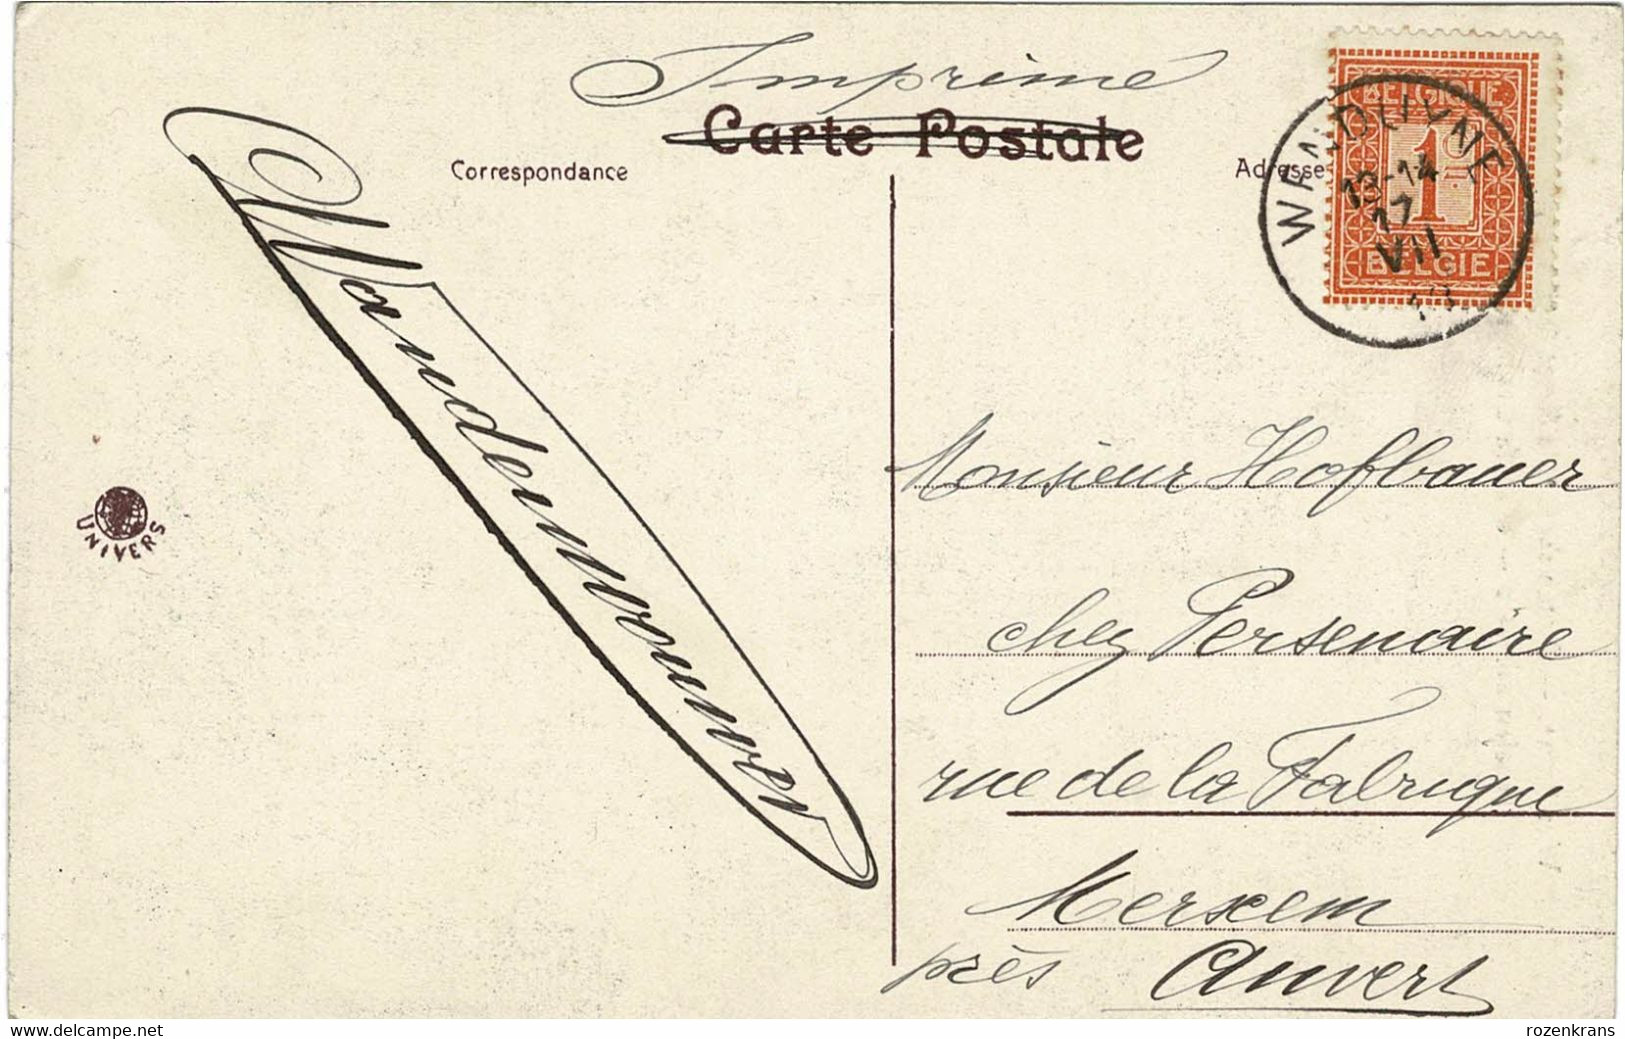 Imprimé
Carte Postale
Correspondance
Adresse
BELGIQUE
1c
BELGIE
13-14
17
VII
UNIVERS
Vandemoumer
Monsieur Hofbauer
chez Persenaire
rue de la Fabrique
Merxem
près Anvers
www.delcampe.net
rozenkrans